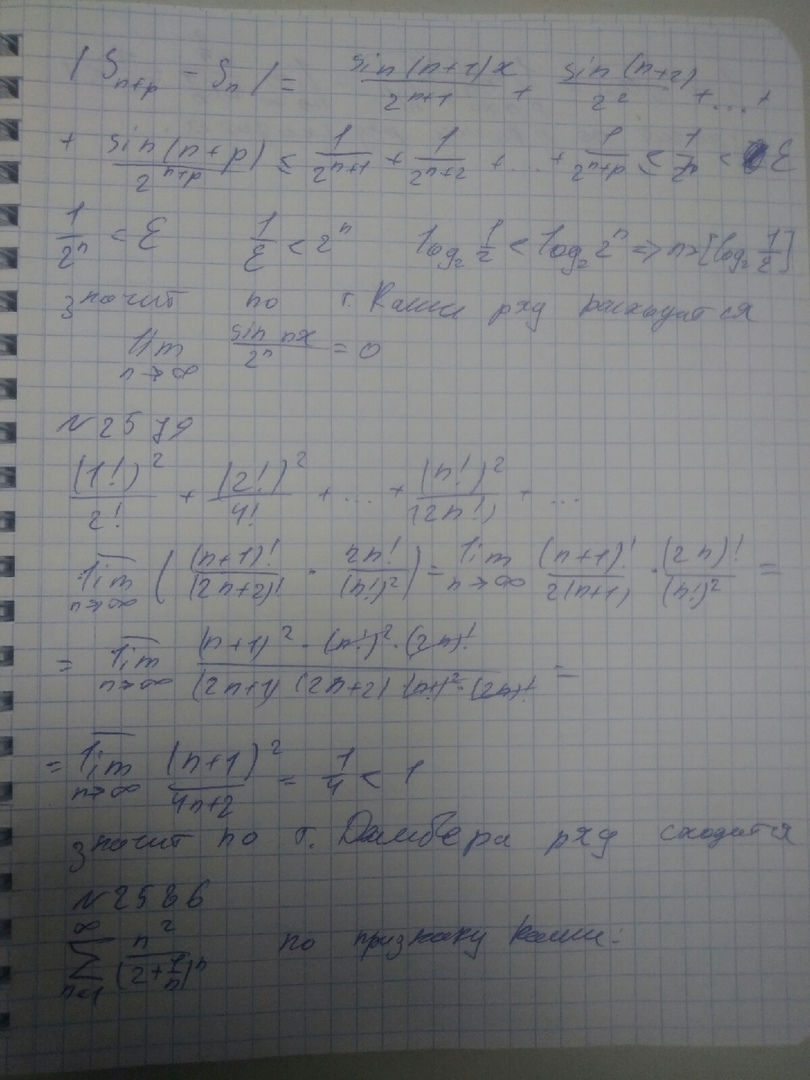 |S_{n+p} - S_n| = \frac{sin(n+1)x}{2^{n+1}} + \frac{sin(n+2)}{2^2} + ... +
+ \frac{sin(n+p)}{2^{n+p}} ≤ \frac{1}{2^{n+1}} + \frac{1}{2^{n+2}} + ... + \frac{1}{2^{n+p}} ≤ \frac{1}{2^n} < ε
\frac{1}{2^n} < ε   \frac{1}{ε} < 2^n   log_2 \frac{1}{ε} < log_2 2^n => n > [log_2 \frac{1}{ε}]
значит по т. Коши ряд расходится
lim_{n→∞} \frac{sin nx}{2^n} = 0
№2579
\frac{(1!)^2}{2!} + \frac{(2!)^2}{4!} + ... + \frac{(n!)^2}{(2n!)} + ...
\overline{lim}_{n→∞} ( \frac{(n+1)!}{(2n+2)!} · \frac{2n!}{(n!)^2} ) = \overline{lim}_{n→∞} \frac{(n+1)!}{2(n+1)} · \frac{(2n)!}{(n!)^2} =
= \overline{lim}_{n→∞} \frac{(n+1)^2 · (n!)^2 · (2n)!}{(2n+1)(2n+2) (n!)^2 · (2n)!} =
= \overline{lim}_{n→∞} \frac{(n+1)^2}{4n+2} = \frac{1}{4} < 1
значит по т. Даламбера ряд сходится
№2586
\sum_{n=1}^{∞} \frac{n^2}{(2+\frac{1}{n})^n}   по признаку Коши: